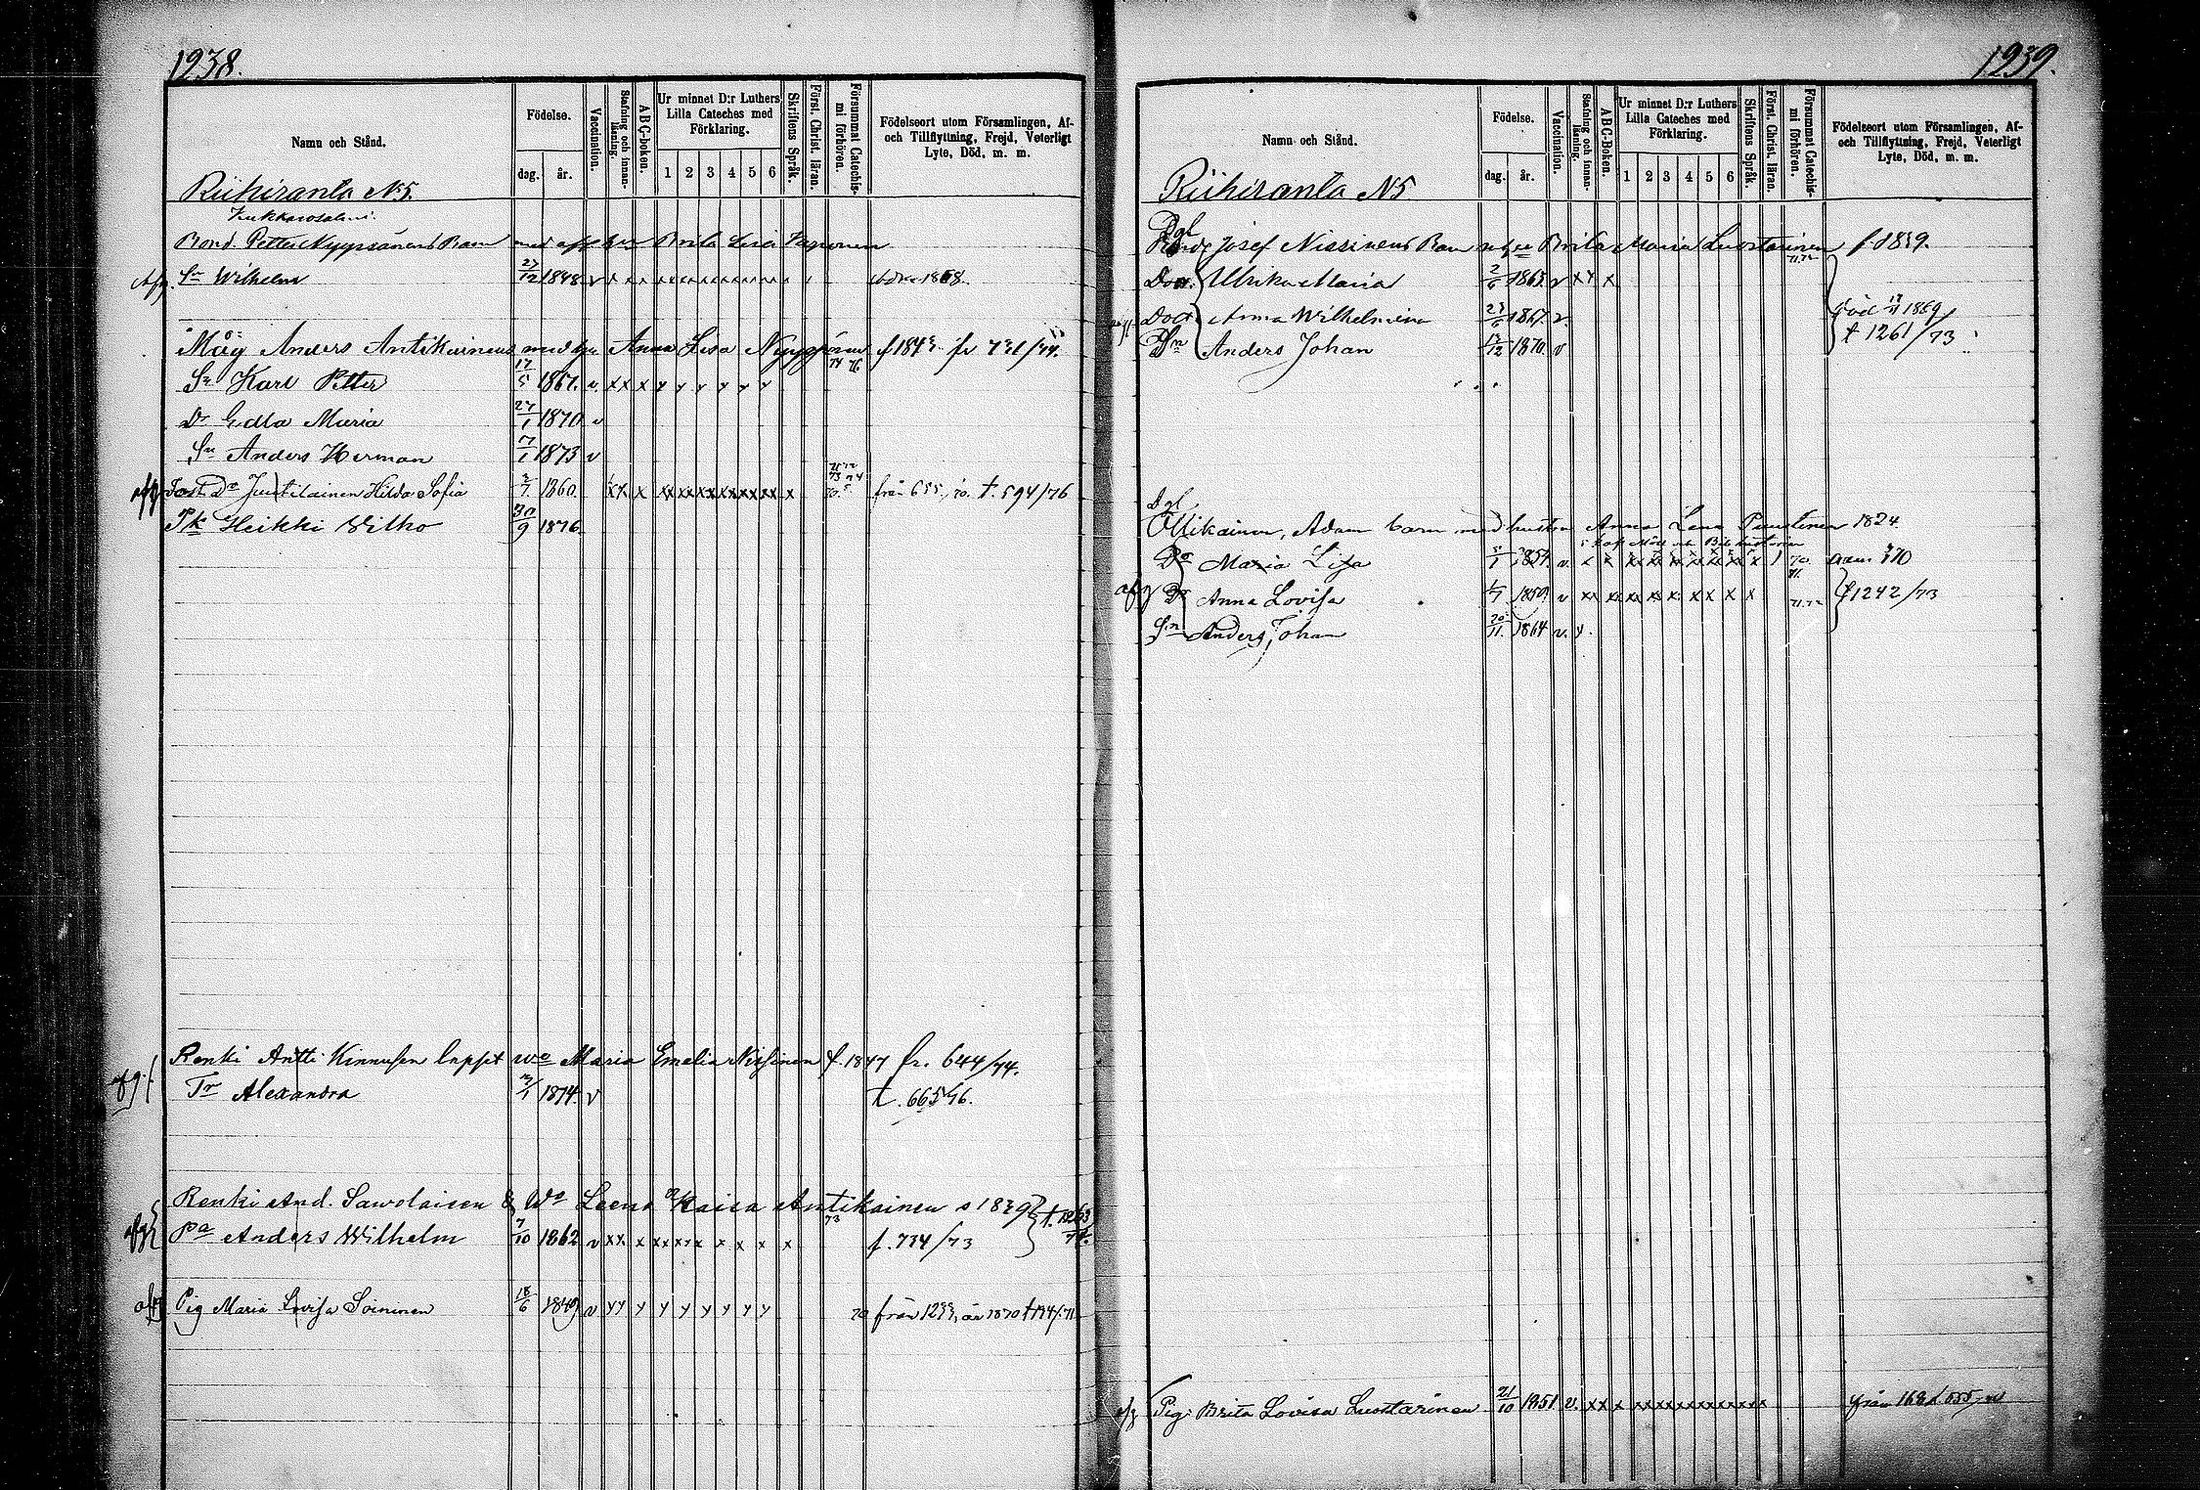 1238.
Namn och Stånd.
Födelse.
dag.
år.
Vaccination.
Stafning och innan-läsning.
ABC-boken.
Ur minnet D:r Luthers
Lilla Cateches med
Förklaring.
1 2 3 4 5 6
Skriftens Språk.
Först. Christ. läran.
Försummat Catechis-
mi förhören.
Födelseort utom Församlingen, Af-
och Tillflyttning, Frejd, Veterligt
Lyte, Död, m. m.
Riihiranta N5.
Bond. Petter Nyyssönens Barn med Brita Lisa
Sn Wilhelm 27/12 1848 v x x x
Måg Anders Antikainens med hu Anna Lisa Nyyssönen f 1843 fr 731/74.
Sn Karl Petter 17/5 1867. v. x x x y y y y y y
Dr Edla Maria 27/1 1870 v
Sn Anders Herman 7/1 1873 v
afg Fost Dr Juutilainen Hilda Sofia 2/7 1860. xx x xx xx xx xx xx xx x från 655/70. t. 594/76
Pk Heikki Wilho 30/9 1876
Renki Antti Kinnusen lapset wo Maria Emelia Nissinen f. 1847 fr. 644/74.
afg. Tr Alexandra 1874. v t. 665/76.
Renki And. Sawolaisen & Wo Leena Kaisa Antikainen s 1839 t. 1263/74.
afg Pa Anders Wilhelm 7/10 1862 v xx x xx xx x x x x x f. 734/73
afg Pig Maria Lovisa Soininen 18/6 1849 v yy y y y y y y y 70 från 1233, år 1870 t 194/71
1239.
Namn och Stånd.
Födelse.
dag.
år.
Vaccination.
Stafning och innan-läsning.
ABC-Boken.
Ur minnet D:r Luthers
Lilla Cateches med
Förklaring.
1 2 3 4 5 6
Skriftens Språk.
Först. Christ. läran.
Försummat Catechis-
mi förhören.
Födelseort utom Församlingen, Af-
och Tillflyttning, Frejd, Veterligt
Lyte, Död, m. m.
Riihiranta N5
Dgl
Josef Nissinens Barn Brita Maria Luostarinen f. 1839.
71.72
Dotr. Ulrika Maria 2/6 1865. v x x x
Dotr Anna Wilhelmina 1867. v. 1869
Sn Anders Johan 1870. v t 1261/73
Dgl
Ollikainen, Adam barn med hustru Anna Lena Puustinen 1824
Dr Maria Lisa 1854. v. 70 71.
afg Dr Anna Lovisa 1859 v xx xx xx xx x x x x x 71.72 t 1242/73
Sn Anders Johan 20/11. 1864 v. y.
afg Pig. Brita Lovisa Luostarinen 21/10 1851 v. xx x xxxxxxxxxxxxx från 168